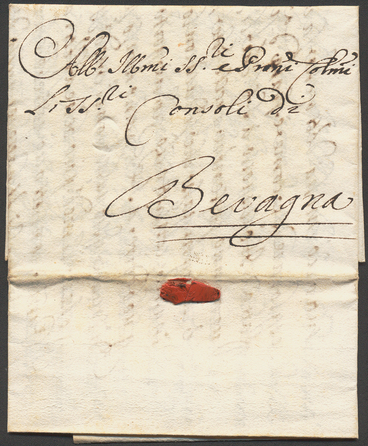 All'. Illmi SS.ri e Prõni Colmi
Li SS.ri Consoli di
Bevagna